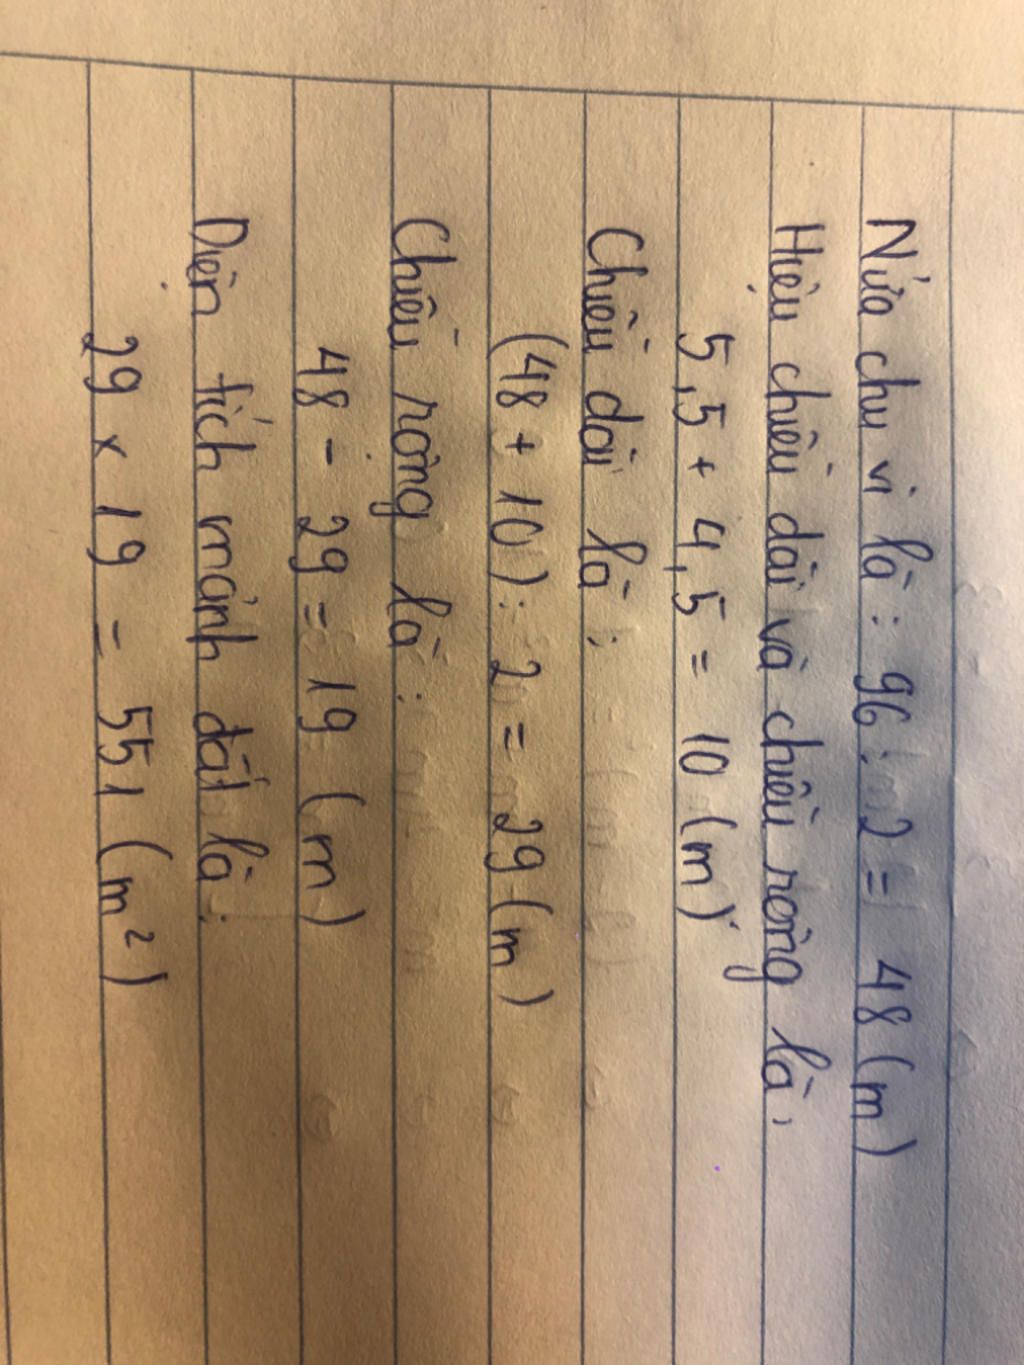 Nửa chu vi là : 96 : 2 = 48 (m)
Hiệu chiều dài và chiều rộng là :
5,5 + 4,5 = 10 (m)
Chiều dài là :
(48 + 10) : 2 = 29 (m)
Chiều rộng là :
48 - 29 = 19 (m)
Diện tích mảnh đất là :
29 x 19 = 551 (m²)